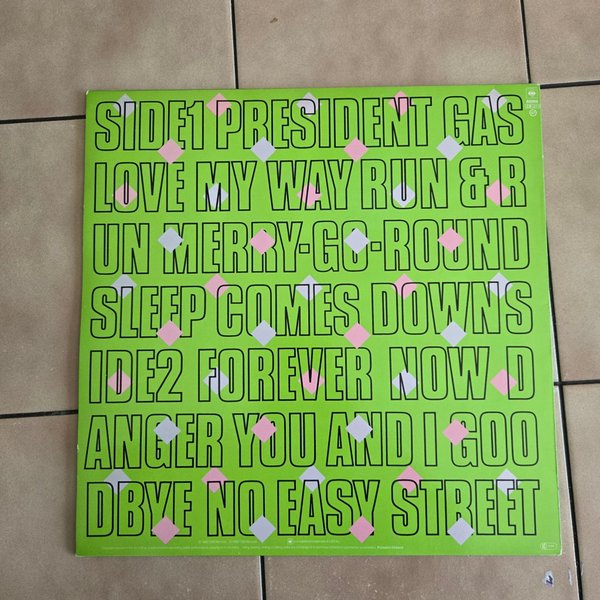 SIDE1 PRESIDENT GAS
LOVE MY WAY RUN & R
UN MERRY-GO-ROUND
SLEEP COMES DOWN S
IDE2 FOREVER NOW D
ANGER YOU AND I GOO
DBYE NO EASY STREET